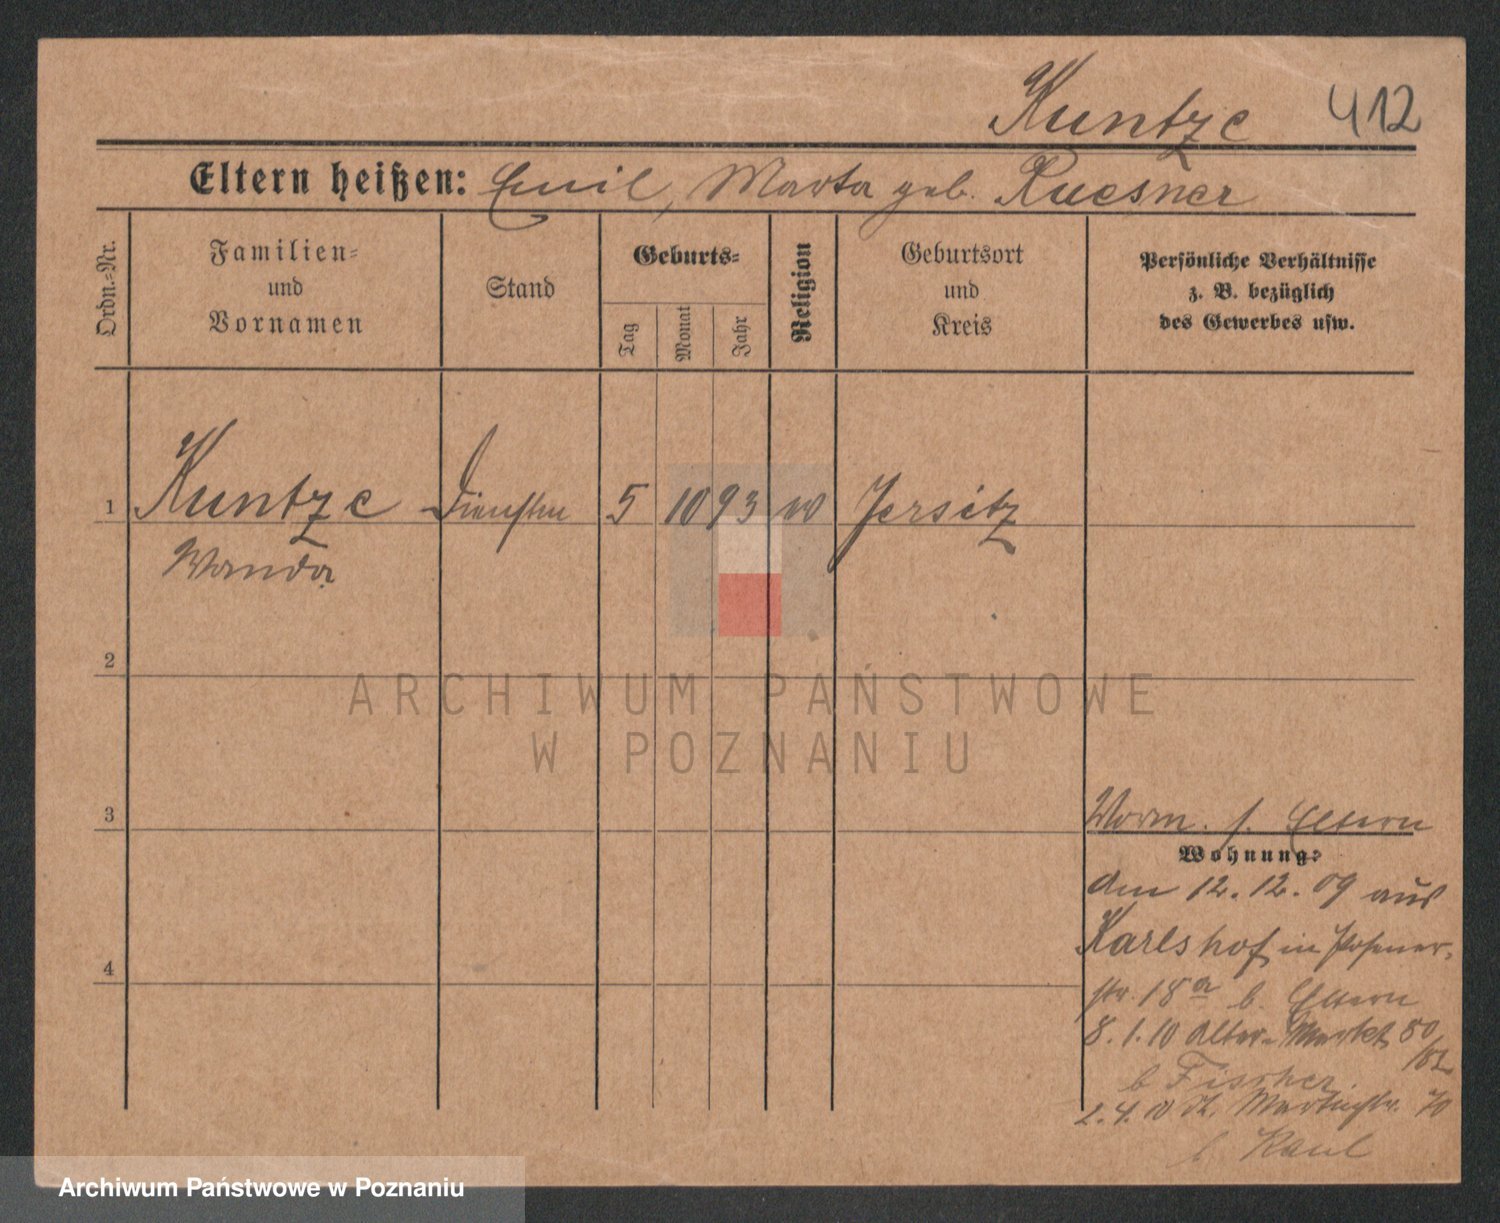 Kuntze 412
Eltern heißen: Emil, Marta geb.
Ordn.=Nr.
Familien=
und
Vornamen
Stand
Geburts=
Tag
Monat
Jahr
Religion
Geburtsort
und
Kreis
Persönliche Verhältnisse
z. B. bezüglich
des Gewerbes usw.
1 Kuntze 5 10 93 Jersitz
Wanda
2
3
4
Vorm. s. Eltern
Wohnung:
am 12. 12. 09 aus
Karlshof in Posener-
str. 18a b. Eltern
8. 1. 10 Alter Markt 80
/82
b Fischer
2. 4. 10 St. Martinstr. 70
b.
ARCHIWUM PAŃSTWOWE
W POZNANIU
Archiwum Państwowe w Poznaniu